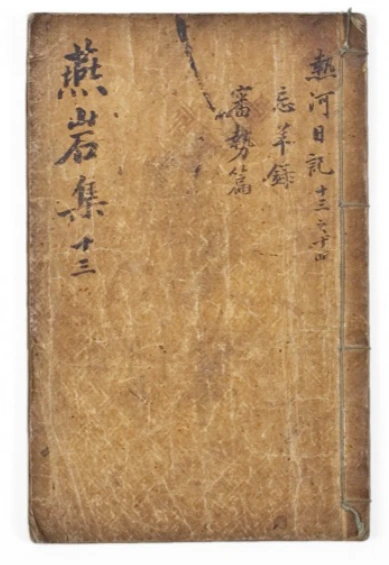 熱河日記 十三之十四
忘羊錄
審勢篇
燕岩集 十三